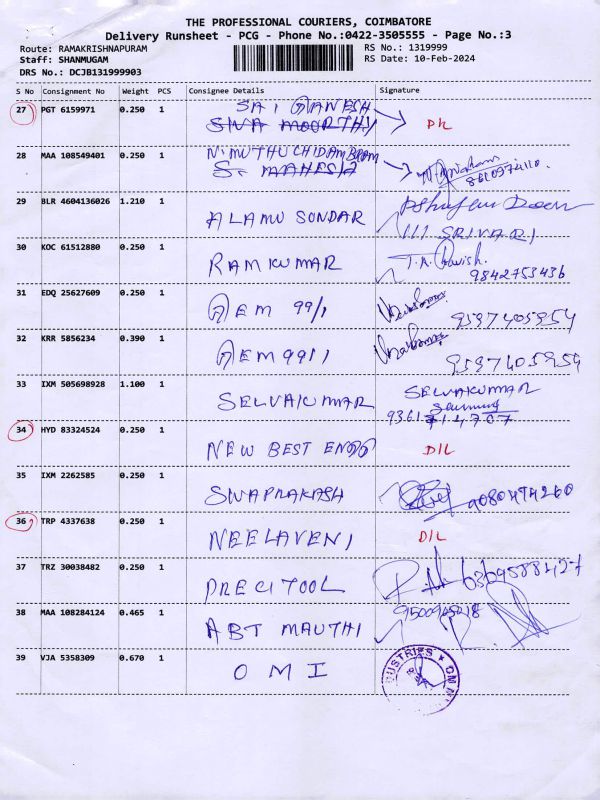 THE PROFESSIONAL COURIERS, COIMBATORE
Delivery Runsheet - PCG - Phone No.:0422-3505555 - Page No.:3
Route: RAMAKRISHNAPURAM RS No.: 1319999
Staff: SHANMUGAM RS Date: 10-Feb-2024
DRS No.: DCJB131999903
S No Consignment No Weight PCS Consignee Details Signature
SAI GANESH
27 PGT 6159971 0.250 1 SIVA MOORTHY D/L
N. MUTHU CHIDAMBRAM
28 MAA 108549401 0.250 1 S. MAHESH
29 BLR 4604136026 1.210 1 ALAMU SUNDAR
111 SRIVARI
30 KOC 61512880 0.250 1 RAMKUMAR
9842753436
31 EDQ 25627609 0.250 1 GEM 99/1 9597405954
32 KRR 5856234 0.390 1 GEM 99/1 9597405954
33 IXM 505698928 1.100 1 SELVAKUMAR SELVAKUMAR
34 HYD 83324524 0.250 1 NEW BEST ENGG D/L
35 IXM 2262585 0.250 1 SIVAPRAKASH 9080494260
36 TRP 4337638 0.250 1 NEELAVENI D/L
37 TRZ 30038482 0.250 1 PRECITOOL
38 MAA 108284124 0.465 1 ABT MARUTHI
39 VJA 5358309 0.670 1 OMI